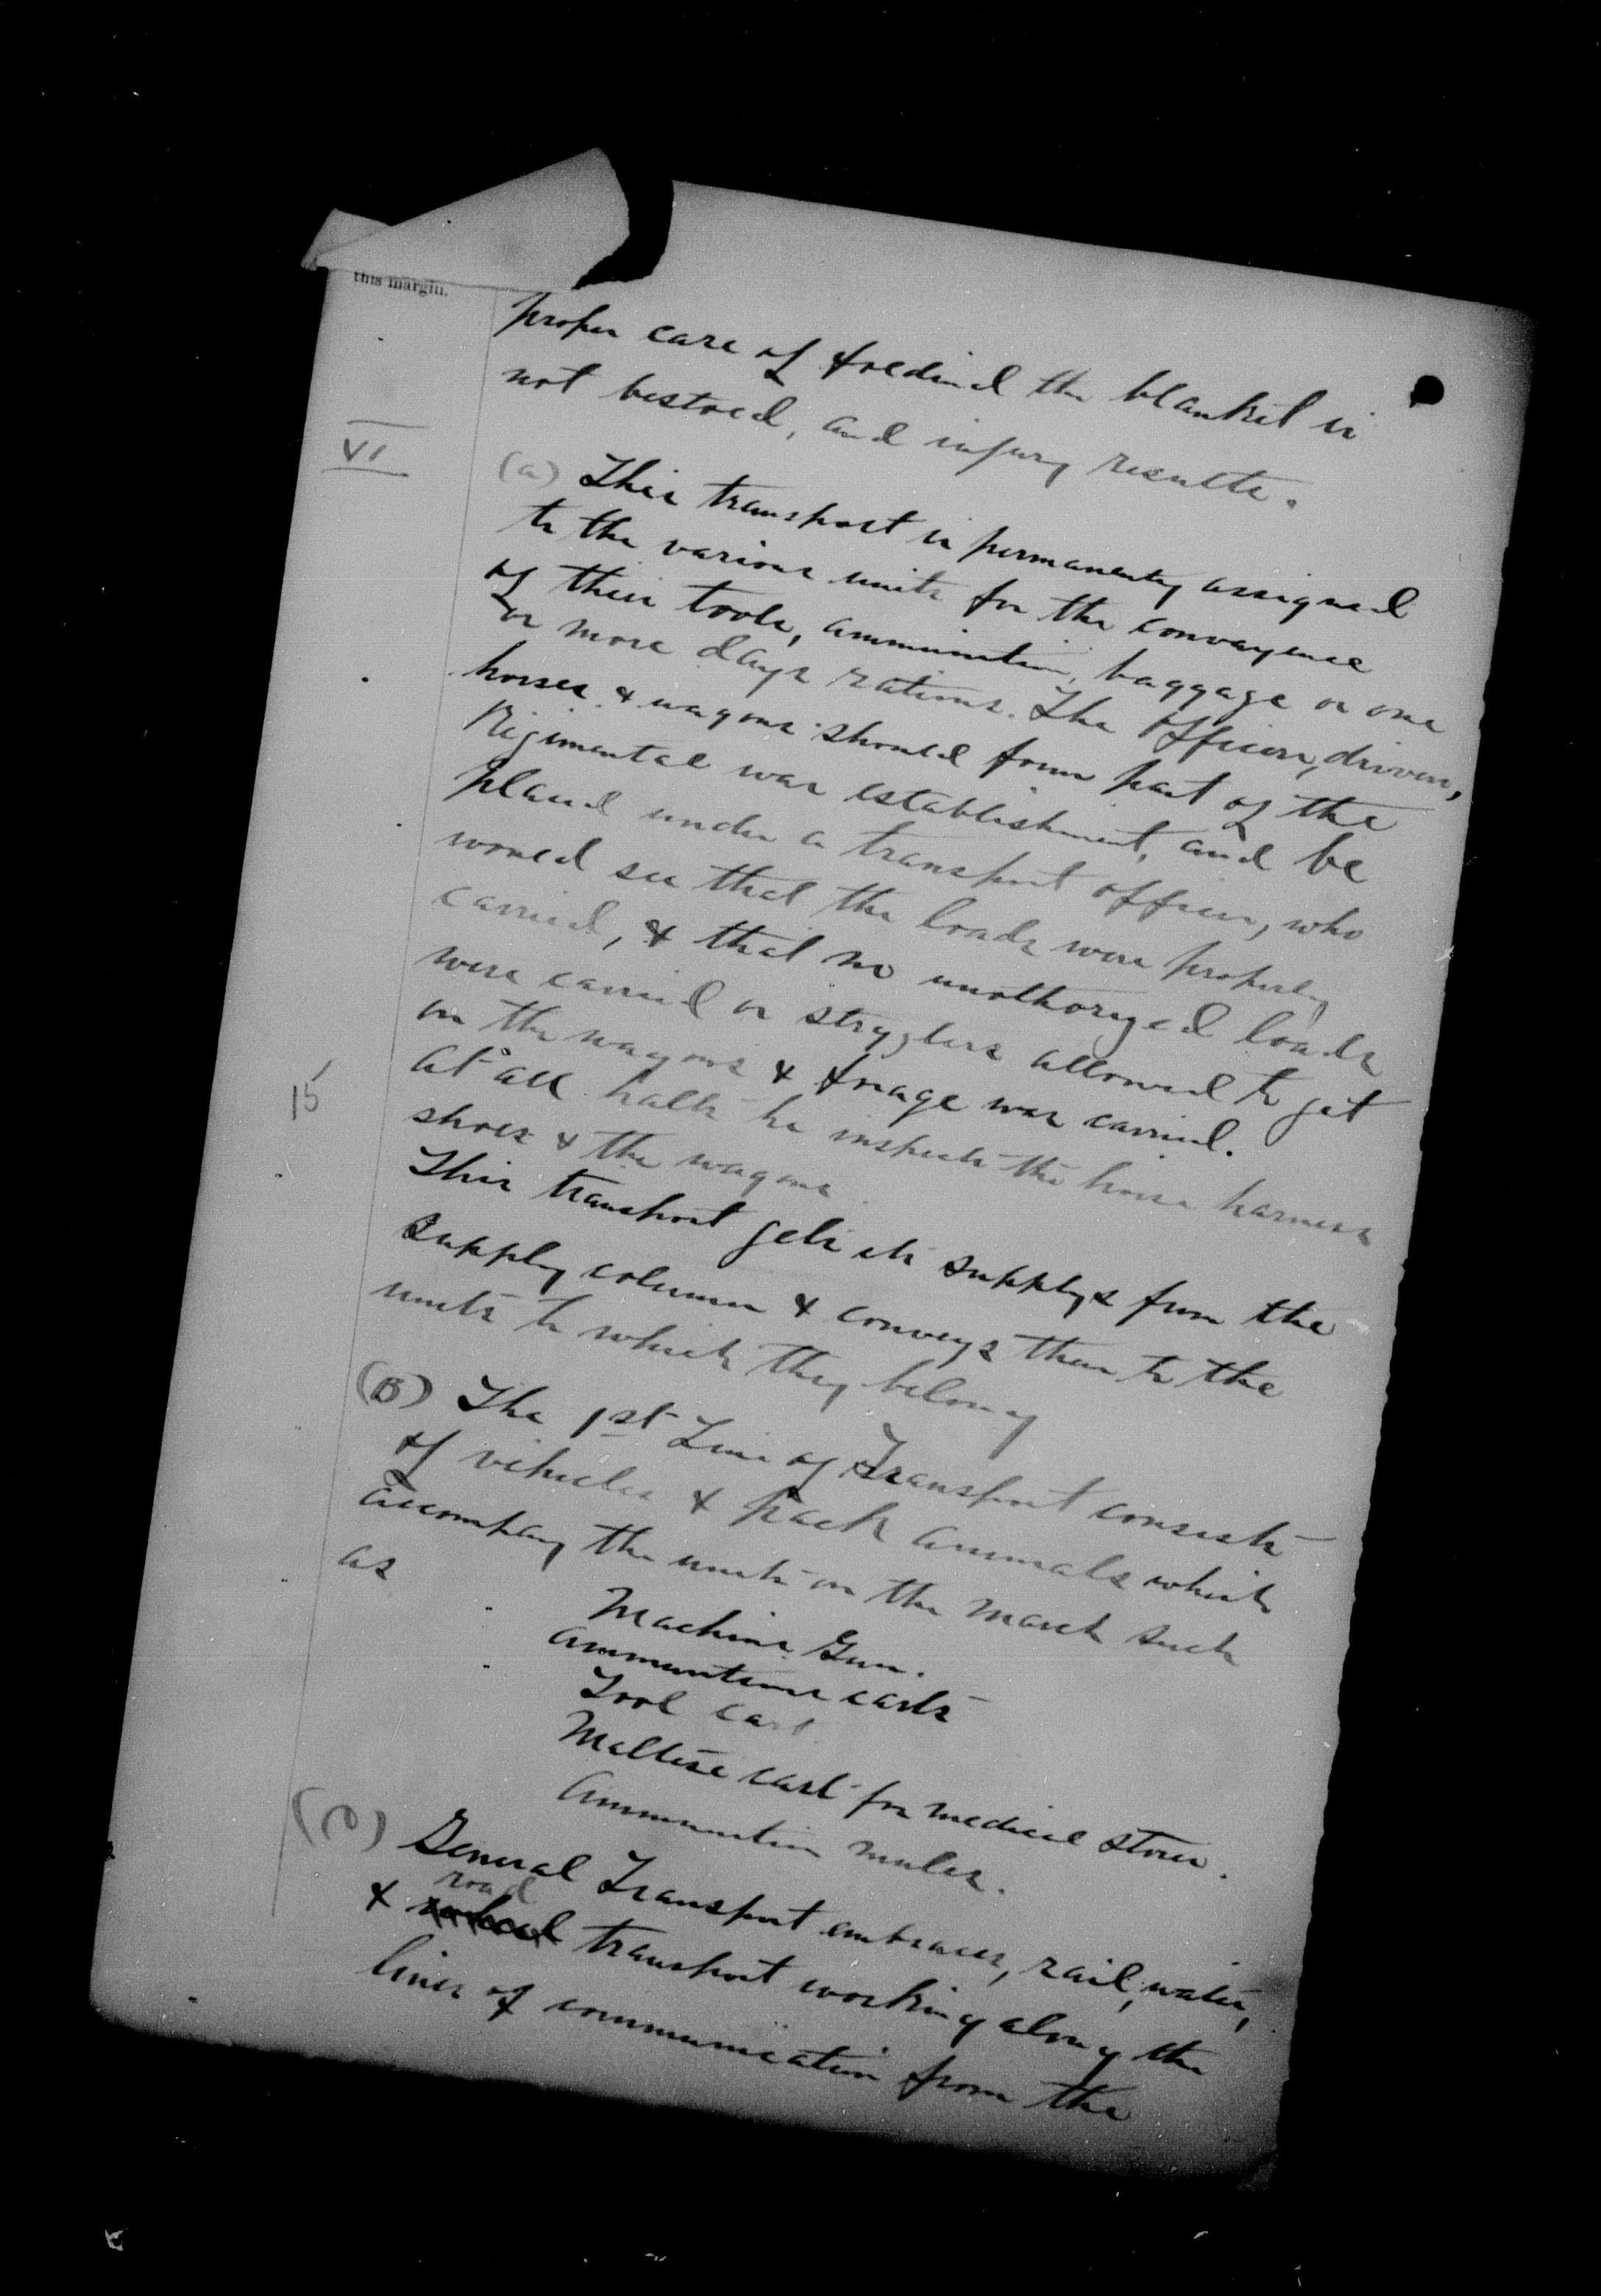 this margin.
proper care of & the blanket is
not bestoed, and injury results.
VI
(a) This transport is permanently assigned
to the various units for the convayence
of their tools, ammunition, baggage or one
or more days rations. The officers, drivers,
horses & wagons should form part of the
Regimental war establishment, and be
placed under a transport officer, who
would see that the loads were properly
carried, & that no unothorized loads
were carried or stragglers allowed to get
on the wagons & forage was carried.
15
At all halts he inspects the horse harness
shoes & the wagons.
This transport gets its supplys from the
supply column & conveys them to the
units to which they belong
(B) The 1st Line of Transport consists
of vehicles & pack animals which
accompany the units on the march such
as
Machine Gun.
ammuntions carts
Tool cart
Maltese cart for medical stores.
Ammunition mules.
(C) General Transport embraces, rail, water,
road
& transport working along the
lines of communication from the